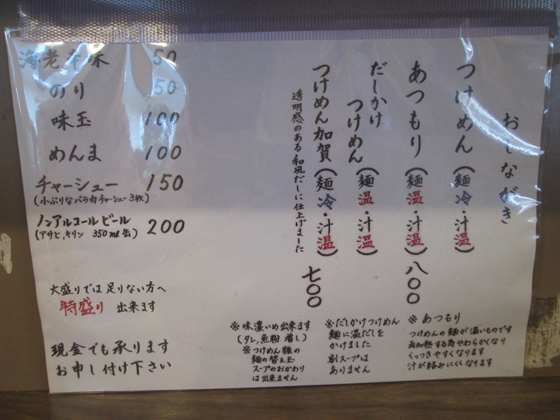 おしながき
つけめん(麺冷・汁温)
あつもり(麺温・汁温)八〇〇
だしかけ
つけめん(麺温・汁温)
つけめん加賀(麺冷・汁温)七〇〇
透明感のある和風だしに仕上げました
50
のり 50
味玉 100
めんま 100
チャーシュー 150
(小ぶりなバラ肉チャーシュー3枚)
ノンアルコールビール 200
(アサヒ、キリン 350ml缶)
大盛りでは足りない方へ
特盛り 出来ます
現金でも承ります
お申し付け下さい
※味濃いめ出来ます
(タレ、魚粉 増し)
※つけめん類の
麺の替え玉
スープのおかわり
は出来ません
※だしかけつけめん
麺に温だしを
かけました
割スープは
ありません
※あつもり
つけめんの麺が温いものです
再加熱する為やわらかくなり
くっつきやすくなります
汁が絡みにくくなります